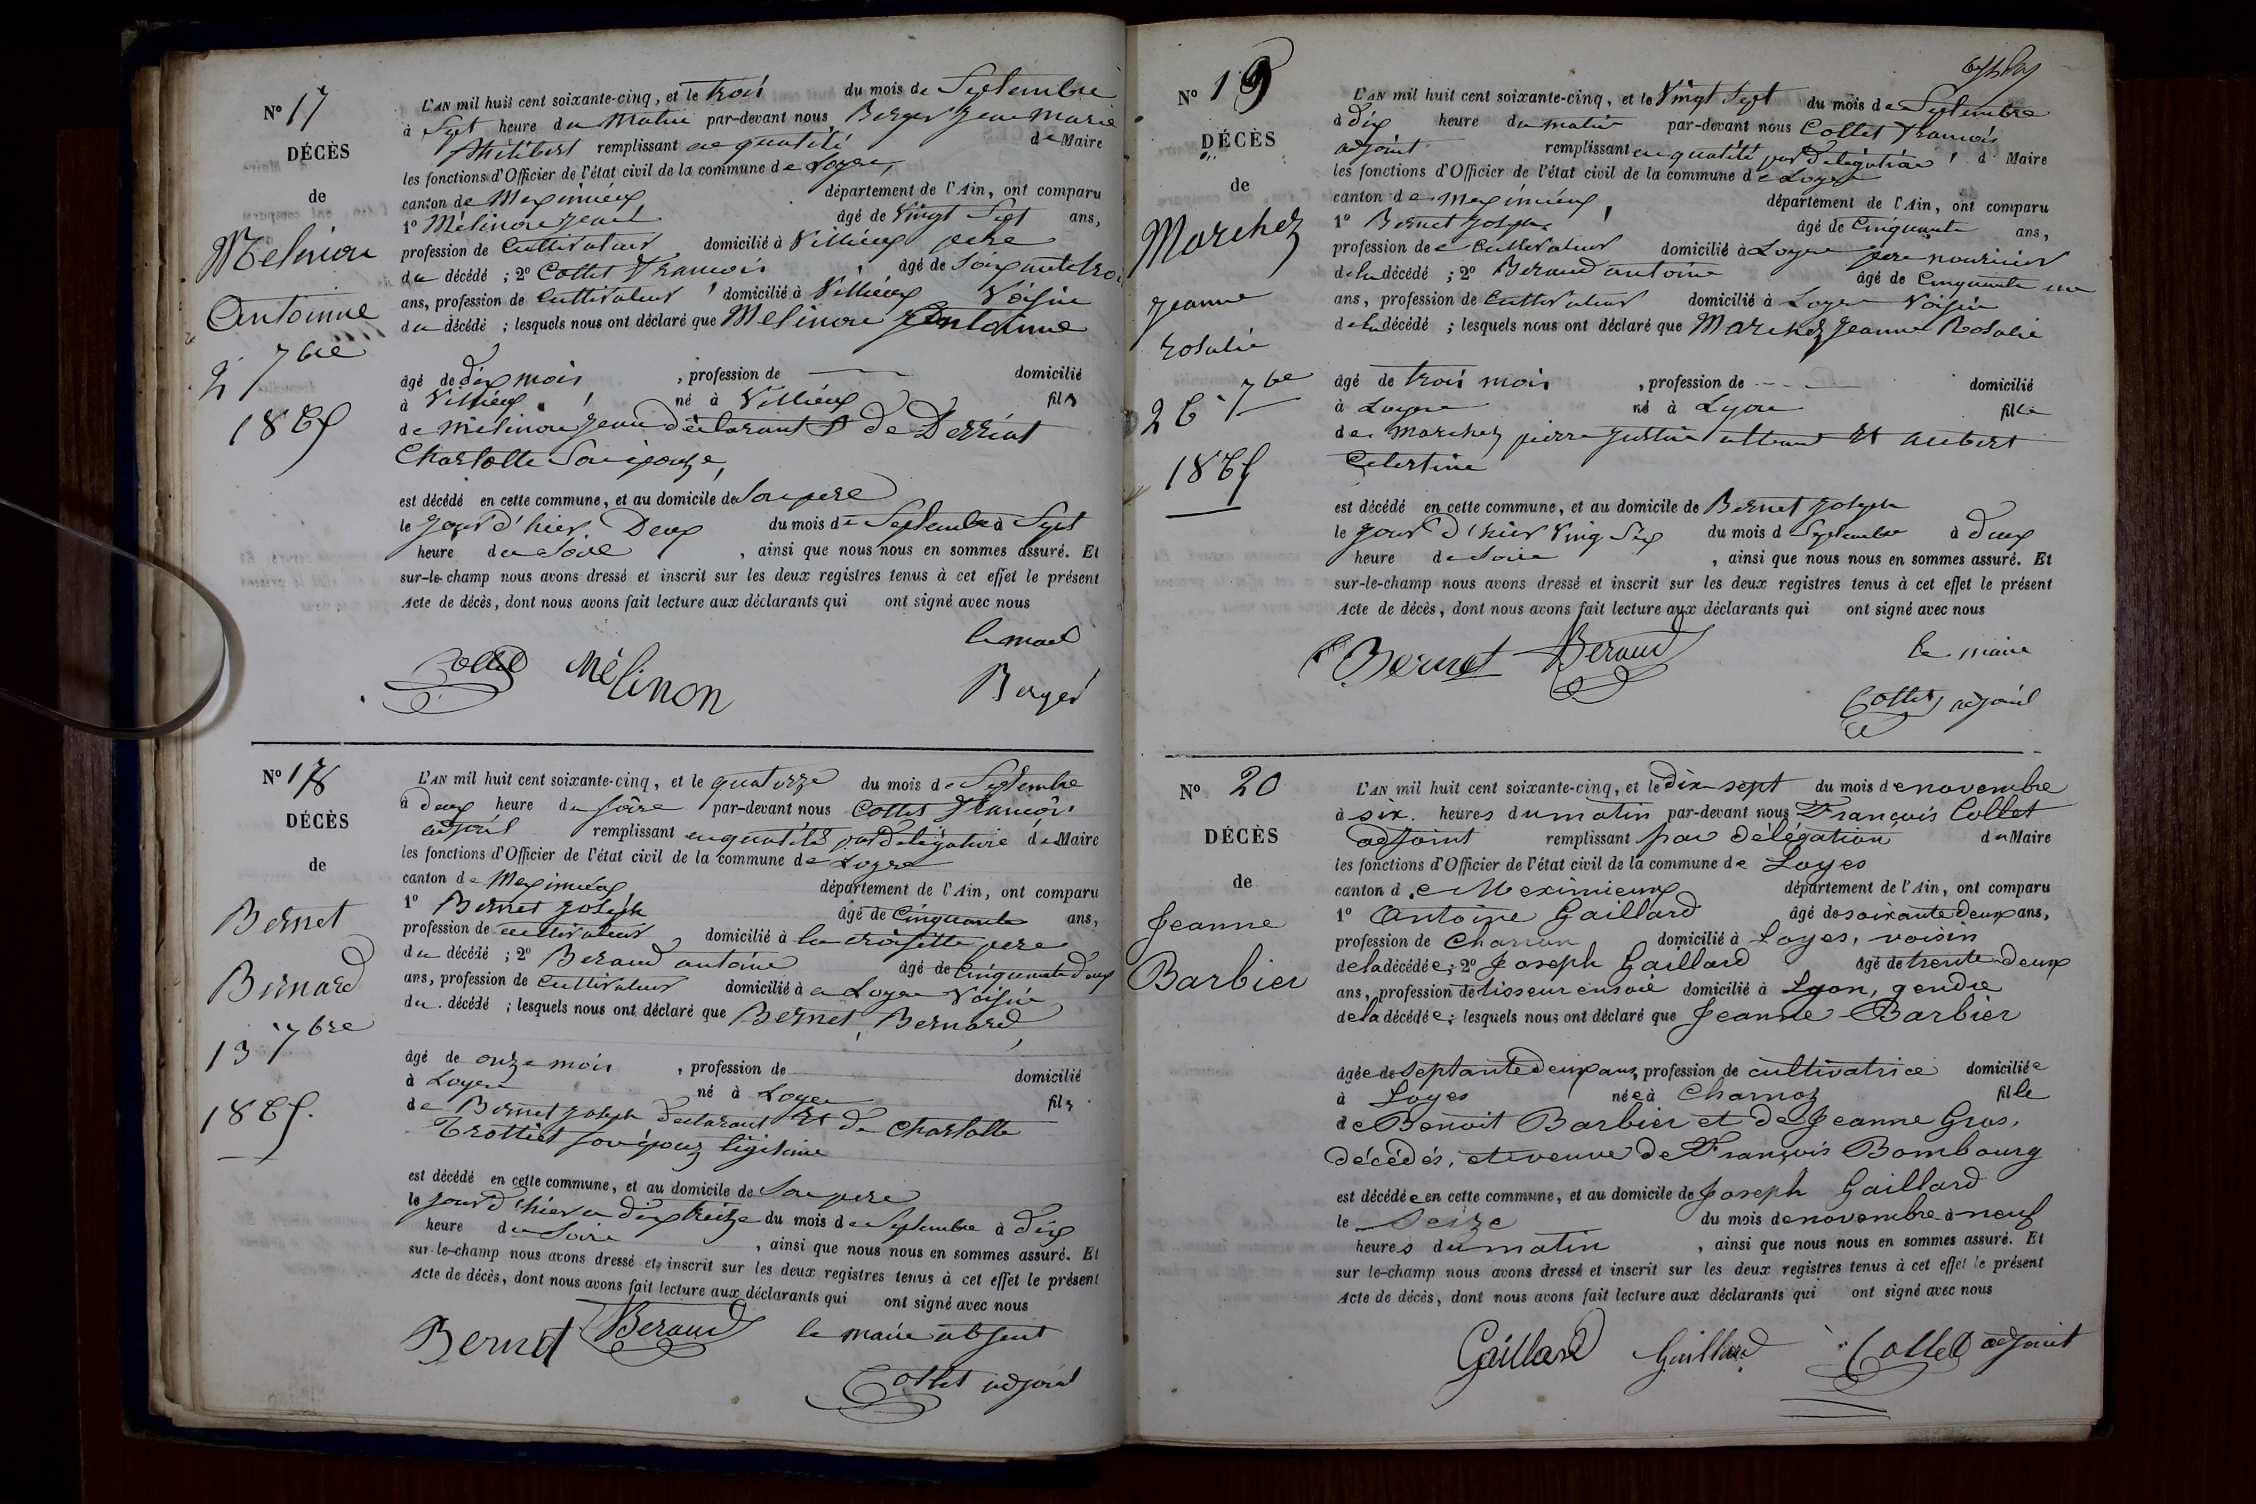 N° 17
DÉCÈS
de
Melinon
Antoinne
2 7bre
1865
L'AN mil huit cent soixante-cinq, et le trois du mois de Septembre
à Sept heure du Matin par-devant nous Berger Jean Marie
Philibert remplissant en qualité de Maire
les fonctions d'Officier de l'état civil de la commune de Loyes,
canton de Meximieux département de l'Ain, ont comparu
1° Mélinon Jean âgé de Vingt Sept ans,
profession de Cultivateur domicilié à Villieux pere
du décédé ; 2° Collet Francois âgé de Soixante trois
ans, profession de Cultivateur domicilié à Villieux Voisin
du décédé ; lesquels nous ont déclaré que Melinon Antoinne
âgé de dix mois , profession de domicilié
à Villieux né à Villieux fils
de Melinon Jean déclarant et de Derriat
Charlotte Son épouze,
est décédé en cette commune, et au domicile de Son pere
le jour d'hier Deux du mois de Septembre à Sept
heure du Soire , ainsi que nous nous en sommes assuré. Et
sur-le-champ nous avons dressé et inscrit sur les deux registres tenus à cet effet le présent
Acte de décès, dont nous avons fait lecture aux déclarants qui ont signé avec nous
le maire
Collet Mélinon
Berger
N° 18
DÉCÈS
de
Bernet
Bernard
13 7bre
1865.
L'AN mil huit cent soixante-cinq, et le quatorze du mois de Septembre
à deux heure du soire par-devant nous Collet Francois
adjoint remplissant en qualité par Délégation de Maire
les fonctions d'Officier de l'état civil de la commune de Loyes
canton de Meximieux département de l'Ain, ont comparu
1° Bernet Joseph âgé de Cinquante ans,
profession de cultivateur domicilié à la croisette pere
du décédé ; 2° Beraud antoine âgé de Cinquante deux
ans, profession de Cultivateur domicilié à a Loyes Voisin
du décédé ; lesquels nous ont déclaré que Bernet, Bernard,
âgé de onze mois , profession de domicilié
à Loyes né à Loyes fils
de Bernet Joseph declarant et de Charlotte
Trottiet son épouz légitime
est décédé en cette commune, et au domicile de Son pere
le jour d'hier a dix treize du mois de Septembre à dix
heure du Soire , ainsi que nous nous en sommes assuré. Et
sur-le-champ nous avons dressé et inscrit sur les deux registres tenus à cet effet le présent
Acte de décès, dont nous avons fait lecture aux déclarants qui ont signé avec nous
Bernet Beraud le maire absent
Collet adjoint
N° 19
DÉCÈS
de
Marchez
Jeanne
rosalie
26 7bre
1865
L'AN mil huit cent soixante-cinq, et le Vingt Sept du mois de Septembre
à dix heure du matin par-devant nous Collet Francois
adjoint remplissant en qualité par Délégation d Maire
les fonctions d'Officier de l'état civil de la commune de Loyes
canton de Meximieux, département de l'Ain, ont comparu
1° Bernet Joseph âgé de Cinquante ans,
profession de Cultivateur domicilié à Loyes pere nouricier
de la décédé ; 2° Beraud antoine âgé de Cinquante un
ans, profession de Cultivateur domicilié à Loyes Voisin
de la décédé ; lesquels nous ont déclaré que Marchez Jeanne Rosalie
âgé de trois mois , profession de domicilié
à Loyes né à Lyon fille
de Marchez pierre Justin et Aubert
Celestine
est décédé en cette commune, et au domicile de Bernet Joseph
le jour d'hier Ving Six du mois d Septembre à deux
heure de Soire , ainsi que nous nous en sommes assuré. Et
sur-le-champ nous avons dressé et inscrit sur les deux registres tenus à cet effet le présent
Acte de décès, dont nous avons fait lecture aux déclarants qui ont signé avec nous
Bernet Beraud le maire
Collet adjoint
N° 20
DÉCÈS
de
Jeanne
Barbier
L'AN mil huit cent soixante-cinq, et le dix-sept du mois de novembre
à six heures du matin par-devant nous François Collet
adjoint remplissant par délégation du Maire
les fonctions d'Officier de l'état civil de la commune de Loyes
canton de Meximieux département de l'Ain, ont comparu
1° Antoine Gaillard âgé de soixante deux ans,
profession de Charron domicilié à Loyes, voisin
de la décédée ; 2° Joseph Gaillard âgé de trente deux
ans, profession de tisseur en soie domicilié à Lyon, gendre
de la décédée ; lesquels nous ont déclaré que Jeanne Barbier
âgée de septante deux ans, profession de cultivatrice domiciliée
à Loyes née à Charnoz fille
de Benoit Barbier et de Jeanne Gros,
décédés, et veuve de François Bombourg
est décédée en cette commune, et au domicile de Joseph Gaillard
le seize du mois de novembre à neuf
heures du matin , ainsi que nous nous en sommes assuré. Et
sur-le-champ nous avons dressé et inscrit sur les deux registres tenus à cet effet le présent
Acte de décès, dont nous avons fait lecture aux déclarants qui ont signé avec nous
Gaillard Gaillard Collet adjoint